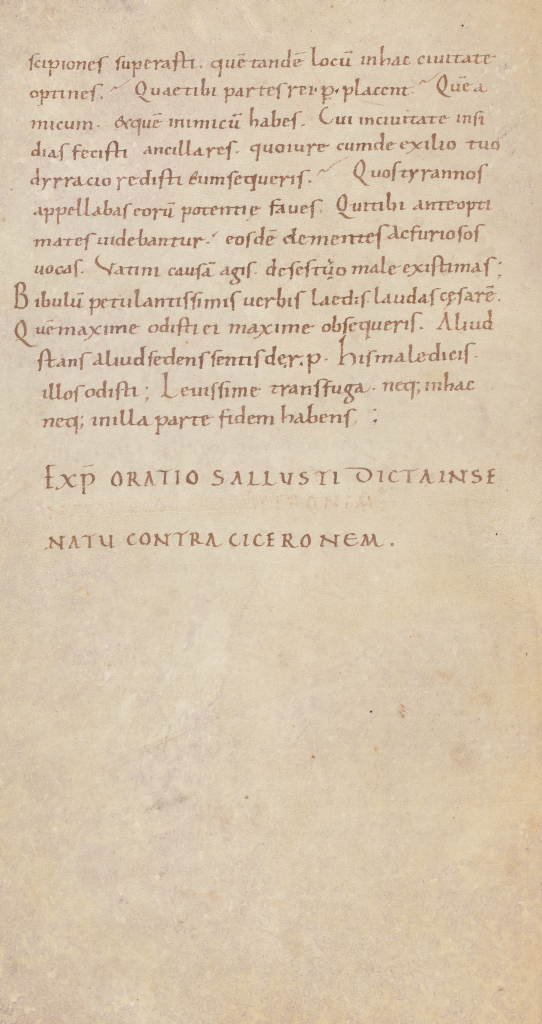 scipiones superasti. quē tandē locū in hac ciuitate
optines. Quae tibi partes rei .p. placent. Quē a
micum. & quē inimicū habes. Cui in ciuitate insi
dias fecisti ancillares. quo iure cum de exilio tuo
dyrracio redisti eum sequeris. Quos tyrannos
appellabas eorū potentie faues. Qui tibi ante opti
mates uidebantur. eosdē dementes ac furiosos
uocas. Vatini causā agis. de sestio male existimas;
Bibulū petulantissimis uerbis laedis laudas cęsarē.
Quē maxime odisti ei maxime obsequeris. Aliud
stans aliud sedens sentis de .r.p. His maledicis.
illos odisti; Leuissime transfuga. neq; in hac
neq; in illa parte fidem habens ;
EXP̄ ORATIO SALLUSTI DICTA IN SE
NATU CONTRA CICERONEM.